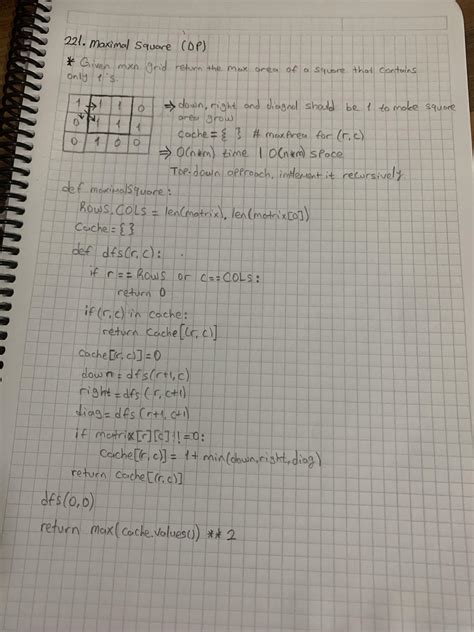 221. Maximal Square (DP)
* Given mxn grid return the max area of a square that contains
only 1's.
1 1 1 0
0 1 1 1
0 1 0 0
⇒ down, right and diagnol should be 1 to make square
area grow
cache = { } # maxArea for (r,c)
⇒ O(n*m) time | O(n*m) space
Top-down approach, implement it recursively
def maximalSquare:
ROWS, COLS = len(matrix), len(matrix[0])
Cache = { }
def dfs(r,c):
if r == ROWS or c == COLS:
return 0
if (r,c) in cache:
return cache[(r,c)]
cache[(r,c)] = 0
down = dfs(r+1, c)
right = dfs(r, c+1)
diag = dfs(r+1, c+1)
if matrix[r][c] != 0:
cache[(r,c)] = 1 + min(down, right, diag)
return cache[(r,c)]
dfs(0,0)
return max(cache.values()) ** 2